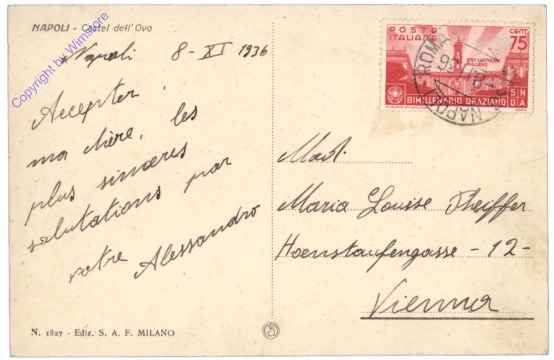 NAPOLI - Castel dell'Ovo
Napoli 8 - XI 1936
Copyright by Wimstore
Accepter
ma chère, les
plus sincères
salutations par
votre Alessandro
N. 1827 - Ediz. S. A. F. MILANO
POSTE
ITALIANE
CENT. 75
BIMILLENARIO ORAZIANO
ROMA
NAPOLI
Mad.
Maria Louise Pfeiffer
Hoenstaufengasse - 12 -
Vienna